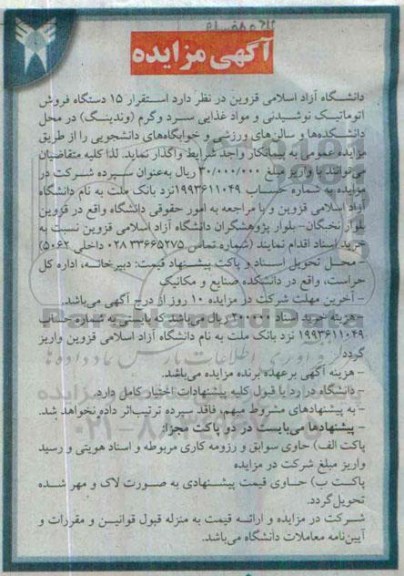 آگهی مزایده
دانشگاه آزاد اسلامی قزوین در نظر دارد استقرار ۱۵ دستگاه فروش
اتوماتیک نوشیدنی و مواد غذایی سرد وگرم (وندینگ) در محل
دانشکده‌ها و سالن‌های ورزشی و خوابگاه‌های دانشجویی را از طریق
مزایده عمومی به پیمانکار واجد شرایط واگذار نماید. لذا کلیه متقاضیان
می‌توانند با واریز مبلغ ۳۰/۰۰۰/۰۰۰ ریال به‌عنوان سپرده شرکت در
مزایده به شماره حساب ۱۹۹۳۶۱۱۰۴۹نزد بانک ملت به نام دانشگاه
آزاد اسلامی قزوین و با مراجعه به امور حقوقی دانشگاه واقع در قزوین
بلوار نخبگان- بلوار پژوهشگران دانشگاه آزاد اسلامی قزوین نسبت به
خرید اسناد اقدام نمایند (شماره تماس ۳۳۶۶۵۲۷۵ ۰۲۸ داخلی ۵۰۶۲)
- محل تحویل اسناد و پاکت پیشنهاد قیمت: دبیرخانه، اداره کل
حراست، واقع در دانشکده صنایع و مکانیک
- آخرین مهلت شرکت در مزایده ۱۰ روز از درج آگهی می‌باشد.
- هزینه خرید اسناد ۲۰۰۰۰۰ ریال می‌باشد که بایستی به شماره حساب
۱۹۹۳۶۱۱۰۴۹ نزد بانک ملت به نام دانشگاه آزاد اسلامی قزوین واریز
گردد/
- هزینه آگهی برعهده برنده مزایده می‌باشد.
- دانشگاه در رد یا قبول کلیه پیشنهادات اختیار کامل دارد.
- به پیشنهادهای مشروط مبهم، فاقد سپرده ترتیب‌اثر داده نخواهد شد.
- پیشنهادها می‌بایست در دو پاکت مجزا:
پاکت الف) حاوی سوابق و رزومه کاری مربوطه و اسناد هویتی و رسید
واریز مبلغ شرکت در مزایده
پاکت ب) حاوی قیمت پیشنهادی به صورت لاک و مهر شده
تحویل گردد.
شرکت در مزایده و ارائه قیمت به منزله قبول قوانین و مقررات و
آیین‌نامه معاملات دانشگاه می‌باشد.